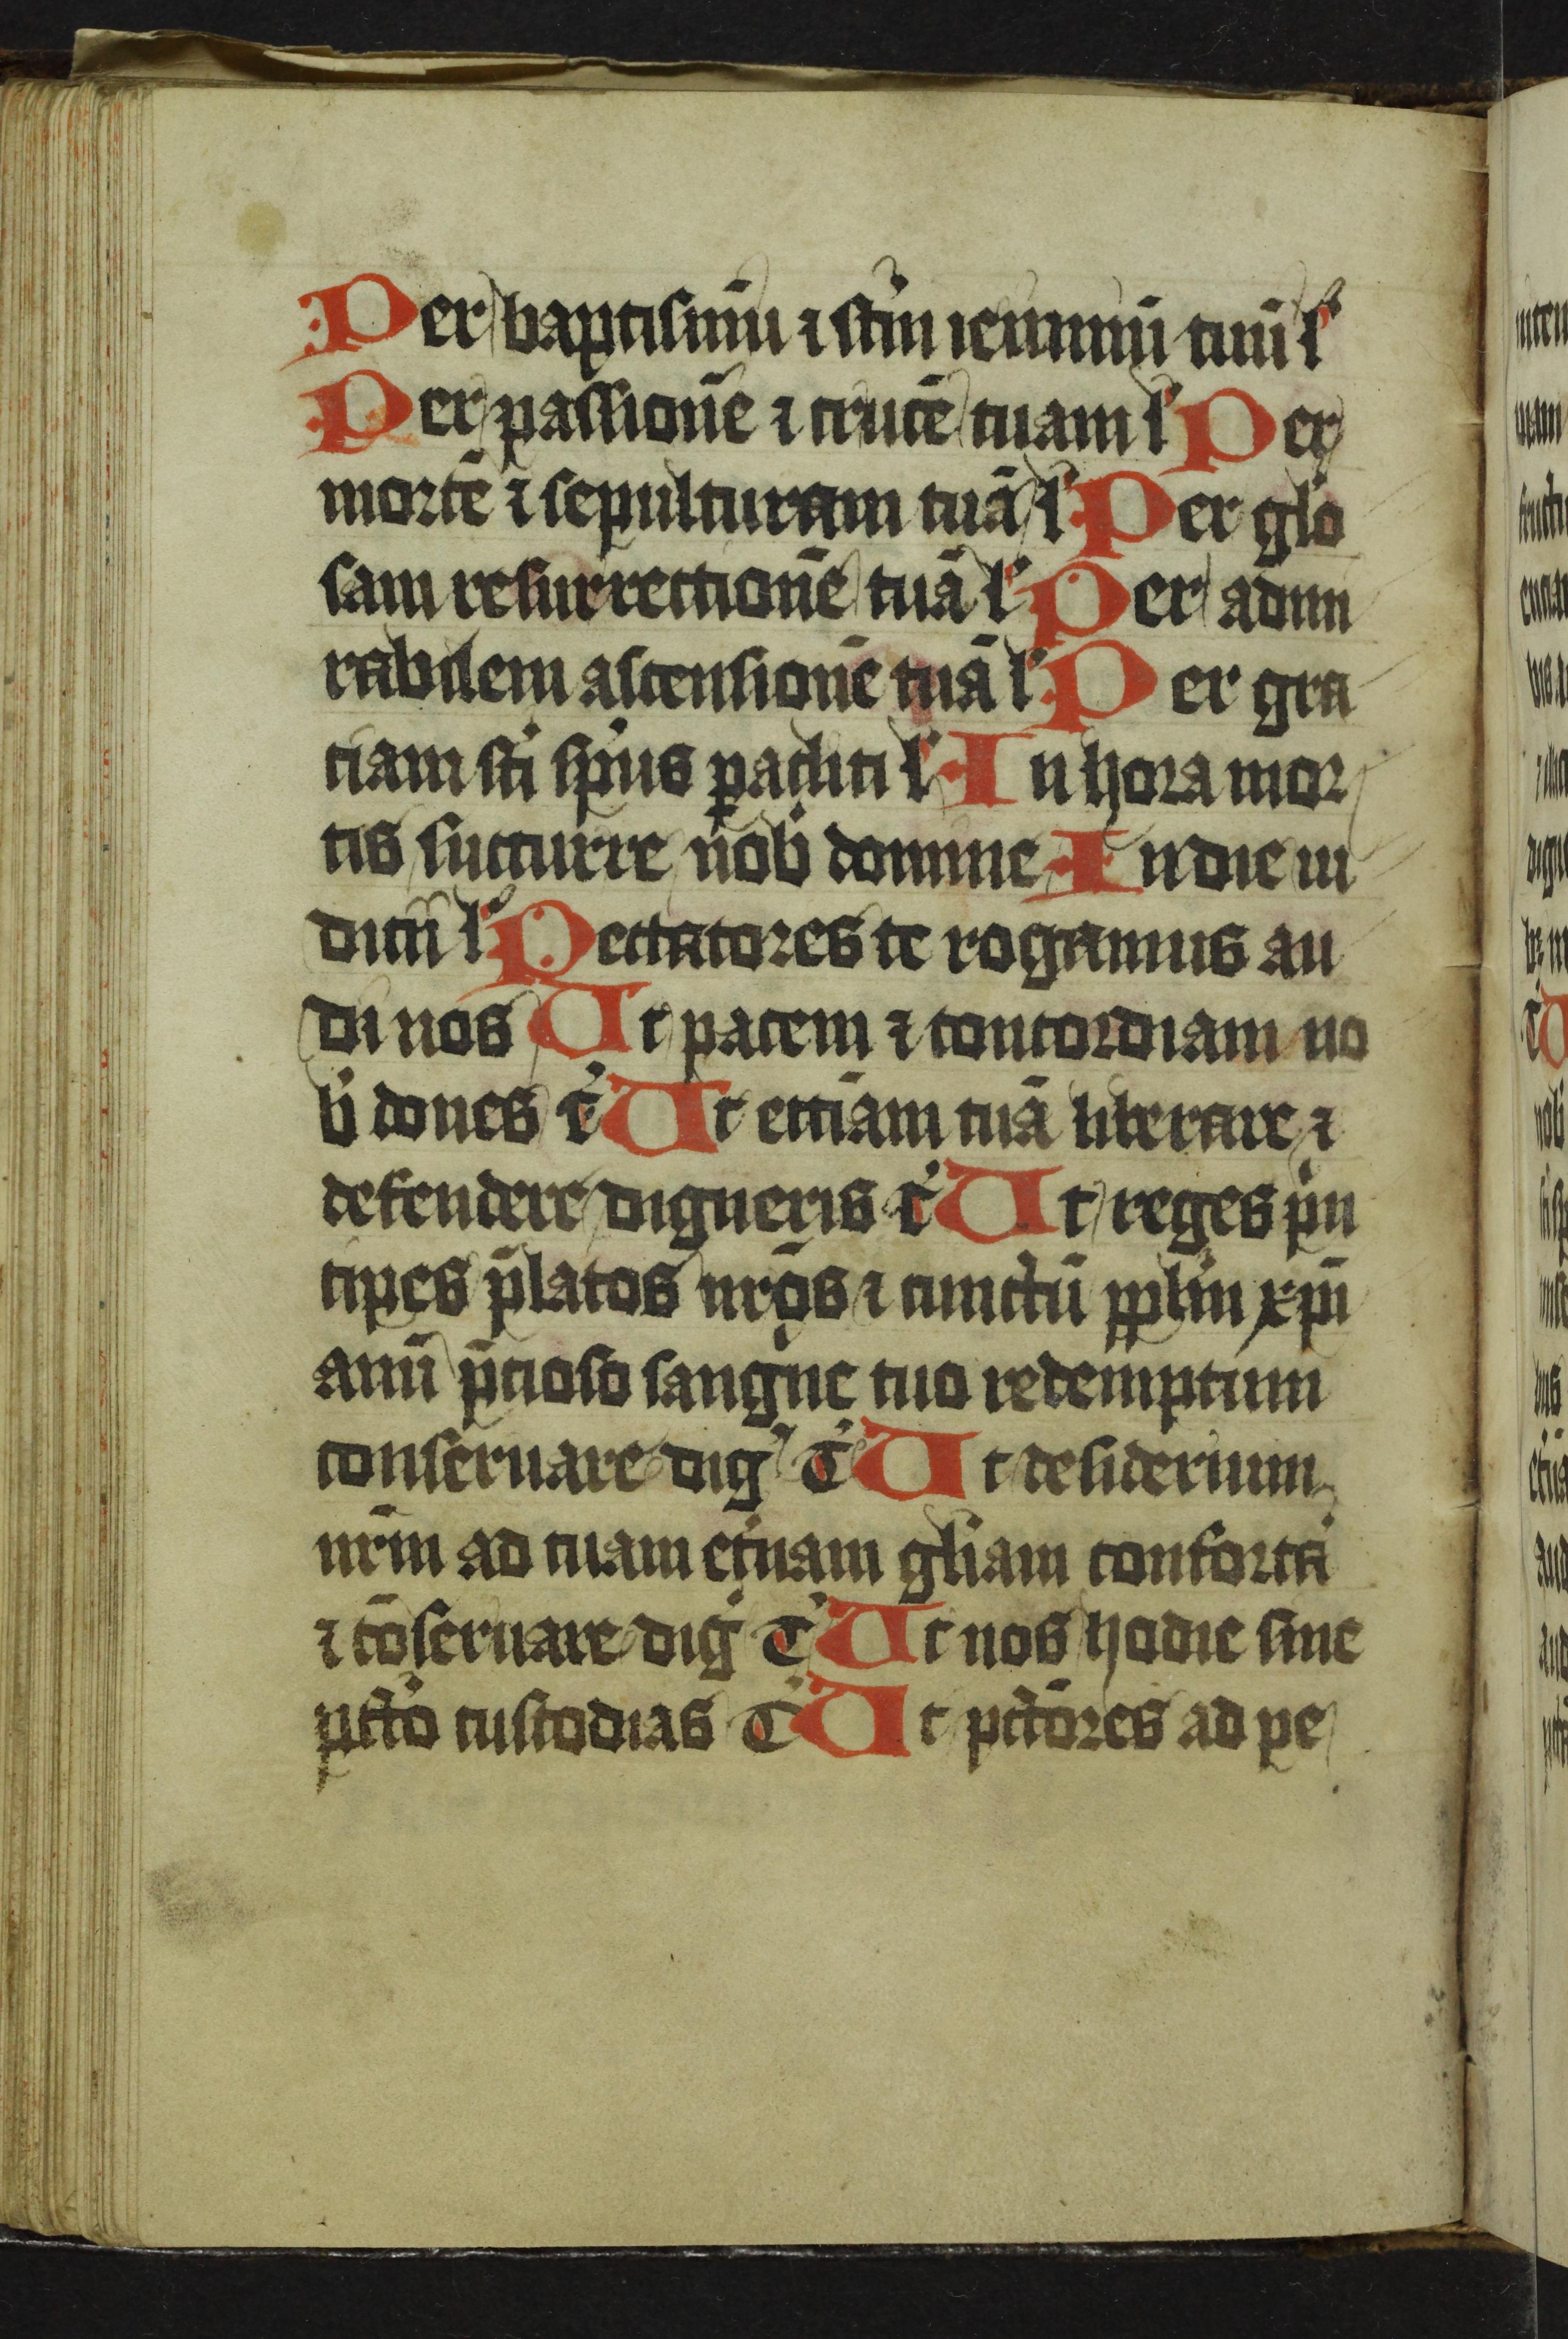 Per baptismū ⁊ stm̄ ieiuniū tuū l̓
Per passionē ⁊ crucē tuam l̓ Per
mortē ⁊ sepulturam tuā l̓ Per glo
sam resurrectionē tuā l̓ Per admi
rabilem ascensionē tuā l̓ Per gra
ciam sti̓ sp̓us ꝑacliti l̓ In hora mor
tis succurre nob̓ domine In die iu
dicii l̓ Peccatores te rogamus au
di nos Ut pacem ⁊ concordiam no
b̓ dones t̓ Ut eccīam tuā liberare ⁊
defendere digneris t̓ Ut reges p̓n
cipes p̄latos nr̄os ⁊ cunctū pplm̄ xp̄i
anū p̄cioso sangne tuo redemptum
conseruare dig̓ T̓ Ut desiderium
nr̄m ad tuam et̓nam gl̓iam conforta
⁊ cōseruare dig̓ T̓ Ut nos hodie sine
pctō custodias T̓ Ut pctōres ad pe